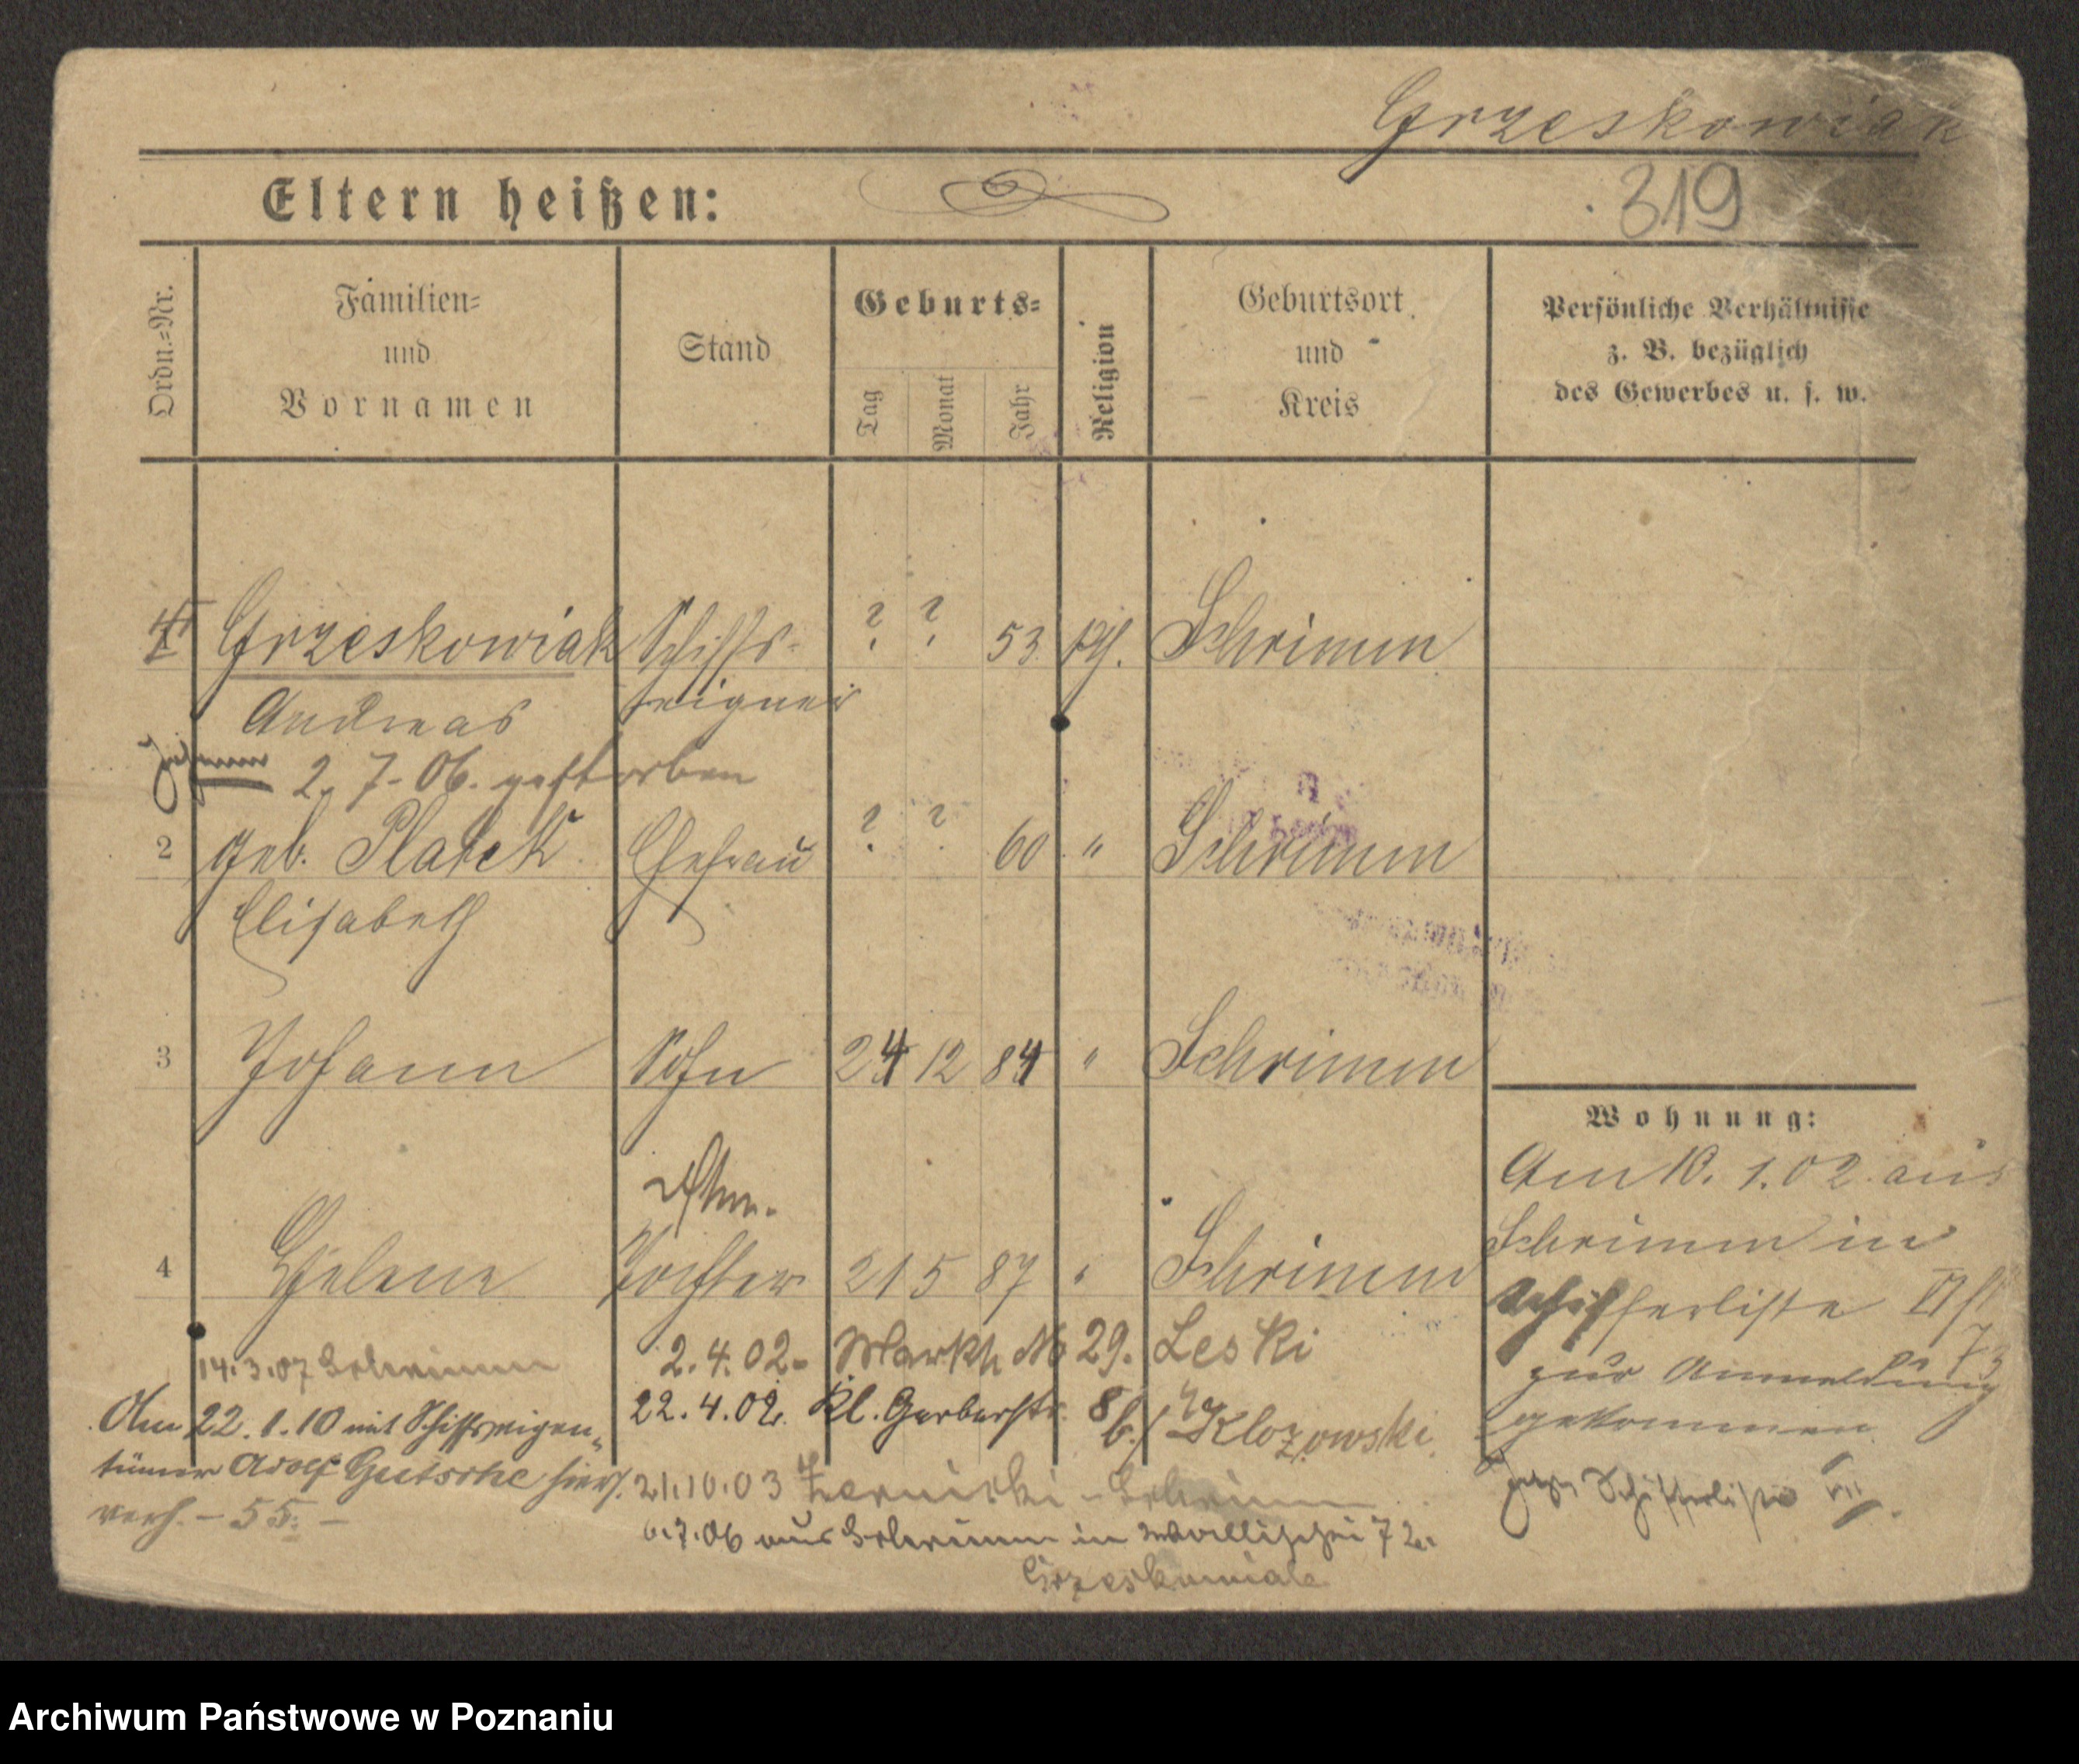 Grzeskowiak
319
Eltern heißen:
Ordn.-Nr.
Familien-
und
Vornamen
Stand
Geburts-
Tag
Monat
Jahr
Religion
Geburtsort
und
Kreis
Persönliche Verhältnisse
z. B. bezüglich
des Gewerbes u. s. w.
Grzeskowiak Schiffs- ? ? 53 kth. Schrimm
Andreas eigner
2. 7. 06. gestorben
2 geb. Ehefrau ? ? 60 " Schrimm
Elisabeth
3 Johann Sohn 24 12 84 " Schrimm
4 Helene Tochter 21 5 87 " Schrimm
Wohnung:
Am 10. 1. 02 aus
Schrimm in
Schifferliste VI
73
zur Anmeldung
gekommen
Schifferliste VII
14.3.07 Schrimm
2.4.02. Markt No 29. Leski
22.4.02. Kl. Gerberstr. 8 b./ Klozowski
Am 22.1.10 mit Schiffseigen-
tümer Adolf Gutsche hier
verh. - 55. -
21.10.03 - Schrimm
6.7.06 aus Schrimm in Wallischei 72.
Grzeskowiak
Archiwum Państwowe w Poznaniu